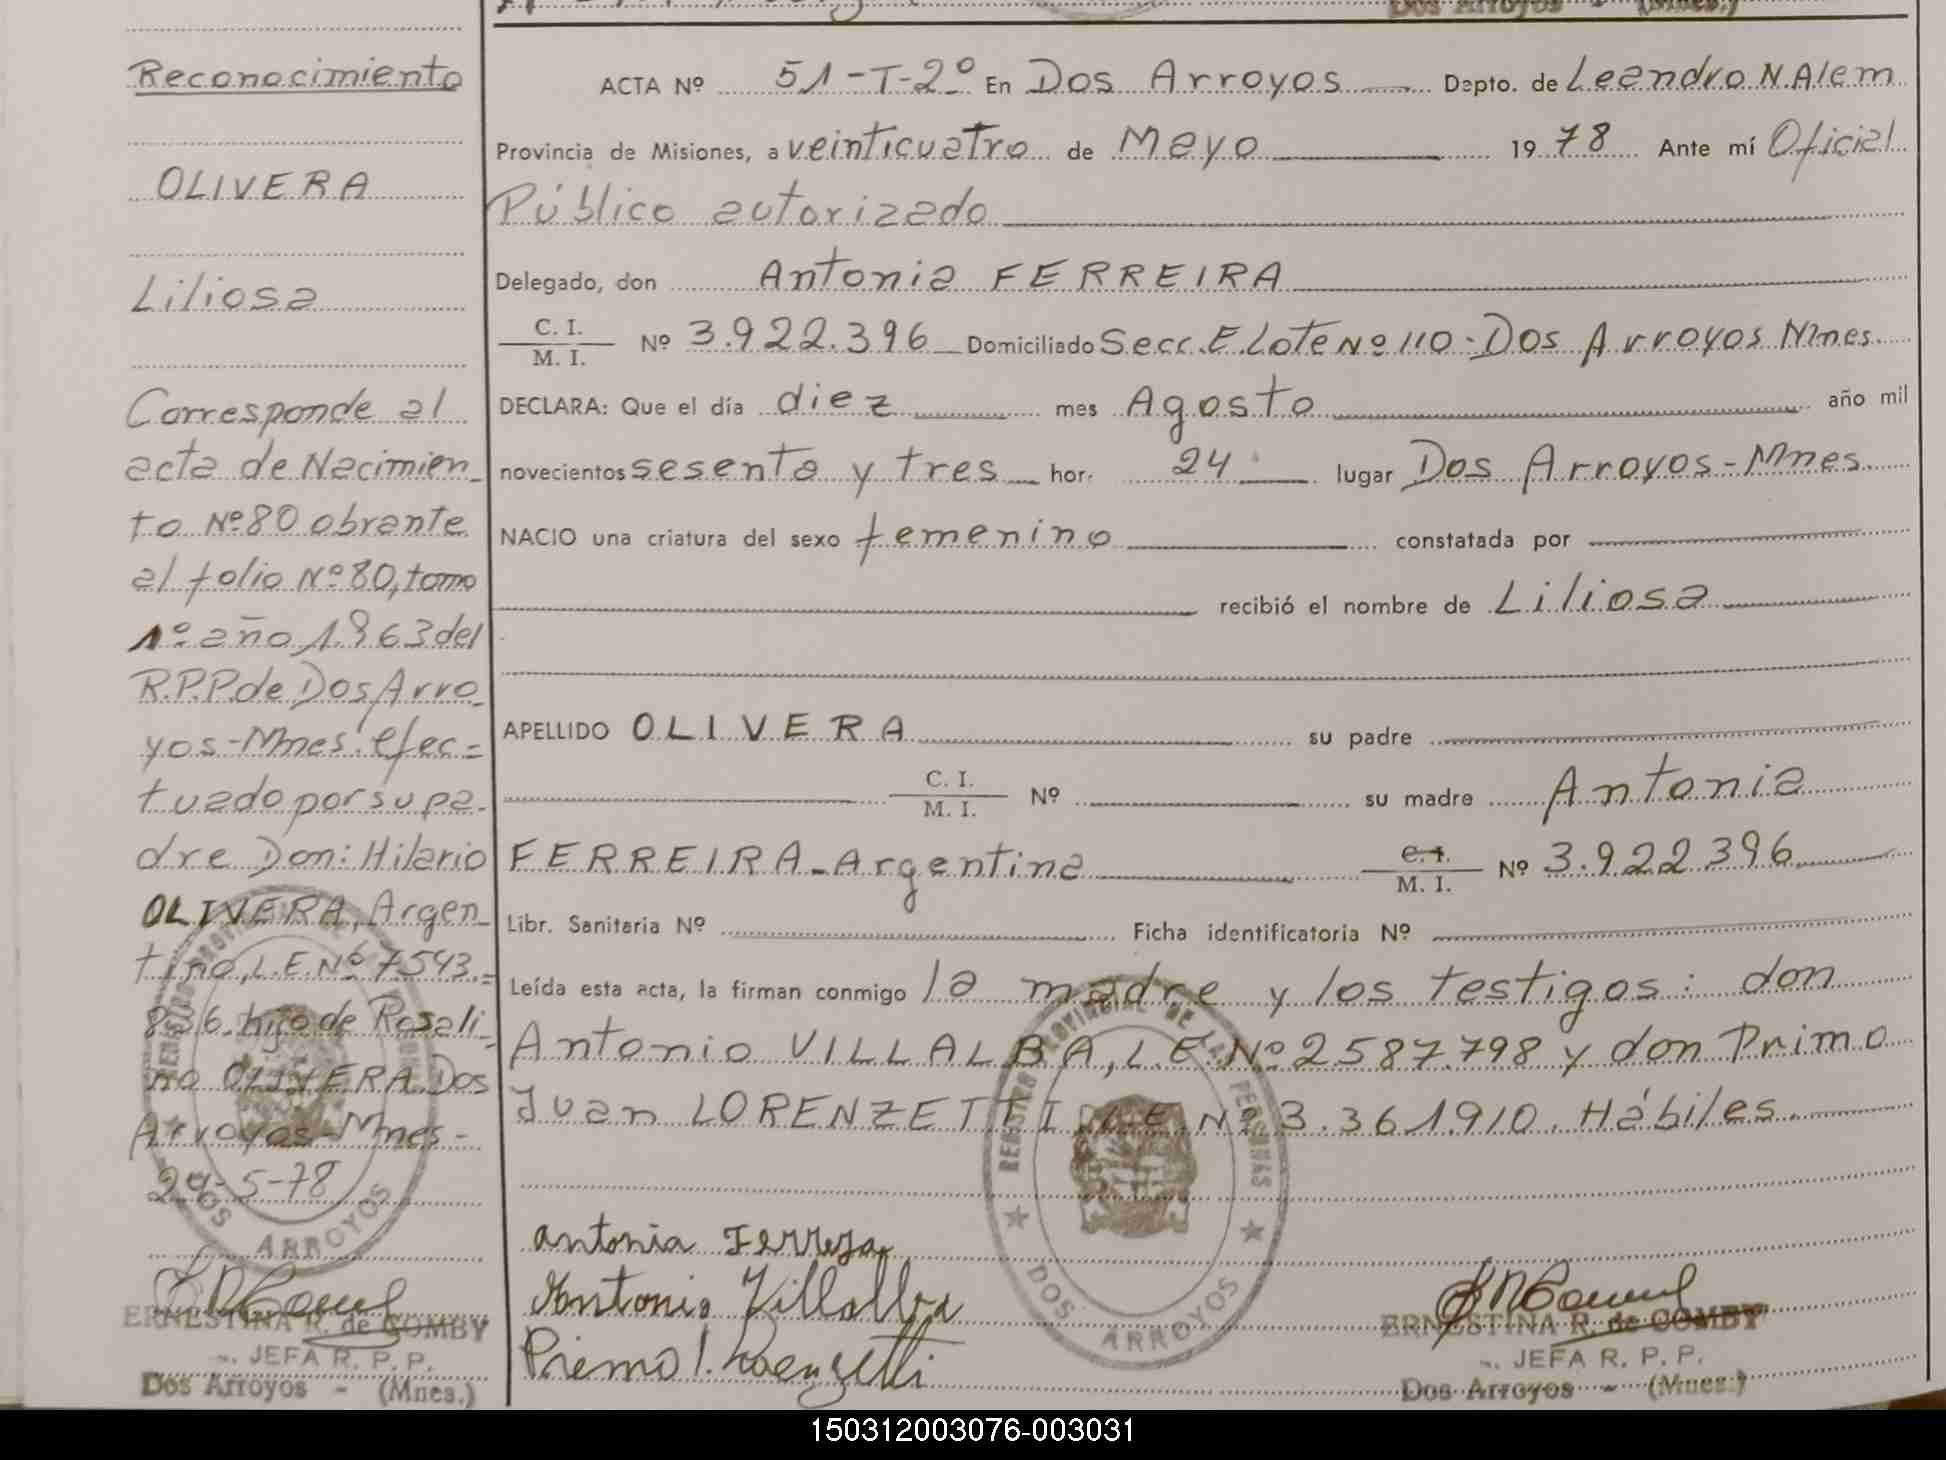 Dos Arroyos - (Mnes.)
Reconocimiento
OLIVERA
Liliosa
Corresponde al
acta de Nacimien-
to Nº 80 obrante
al folio Nº 80, tomo
1º año 1963 del
R.P.P. de Dos Arro-
yos-Mnes. efec=
tuado por su pa-
dre Don: Hilario
OLIVERA, Argen-
tino, L.E. Nº 7543.=
836. hijo de Rosali-
no OLIVERA. Dos
Arroyos-Mnes-
24-5-78
ERNESTINA R. de GOMBY
JEFA R. P. P.
Dos Arroyos - (Mnes.)
ACTA Nº 51-T-2º En Dos Arroyos Depto. de Leandro N. Alem
Provincia de Misiones, a veinticuatro de Mayo 1978 Ante mí Oficial
Público autorizado
Delegado, don Antonia FERREIRA
C. I.
M. I. Nº 3.922.396 Domiciliado Secc. E. Lote Nº 110-Dos Arroyos Mnes.
DECLARA: Que el día diez mes Agosto año mil
novecientos sesenta y tres hor. 24 lugar Dos Arroyos-Mnes.
NACIO una criatura del sexo femenino constatada por
recibió el nombre de Liliosa
APELLIDO OLIVERA su padre
C. I.
M. I. Nº su madre Antonia
FERREIRA-Argentina C. I.
M. I. Nº 3.922.396
Libr. Sanitaria Nº Ficha identificatoria Nº
Leída esta acta, la firman conmigo la madre y los testigos: don
Antonio VILLALBA, L.E. Nº 2587.798 y don Primo
Juan LORENZETTI L.E. Nº 3.361.910. Hábiles.
REGISTRO PROVINCIAL DE LAS PERSONAS
DOS ARROYOS
antonia Ferreyra
Antonio Villalba
Primo J. Lorenzetti
ERNESTINA R. de GOMBY
JEFA R. P. P.
Dos Arroyos - (Mnes.)
150312003076-003031